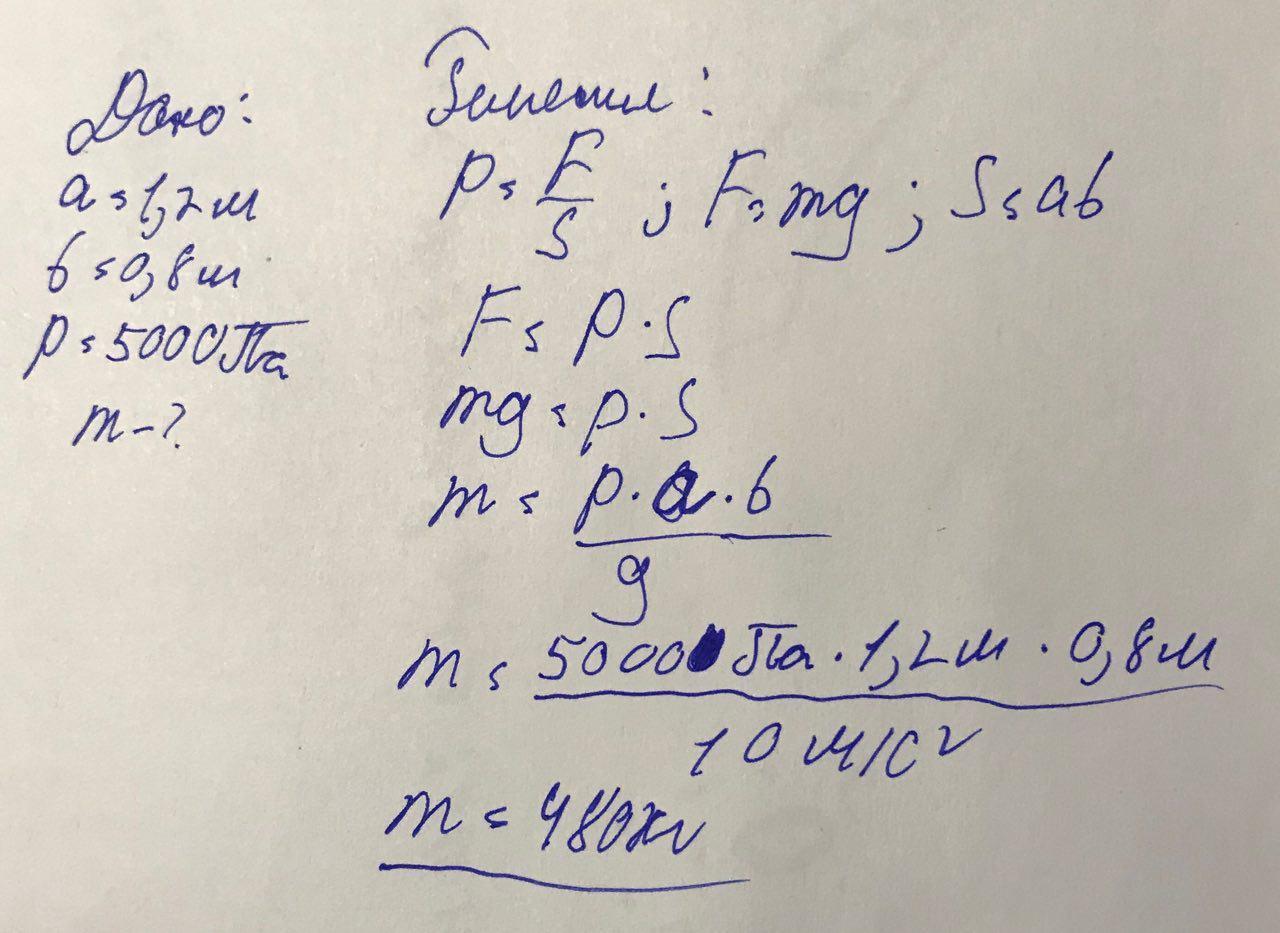 Дано:
a = 1,2 м
b = 0,8 м
p = 5000 Па
m - ?
Решение:
p = F/S ; F = mg ; S = ab
F = p · S
mg = p · S
m = p · a · b / g
m = 5000 Па · 1,2 м · 0,8 м / 10 м/с²
m = 480 кг